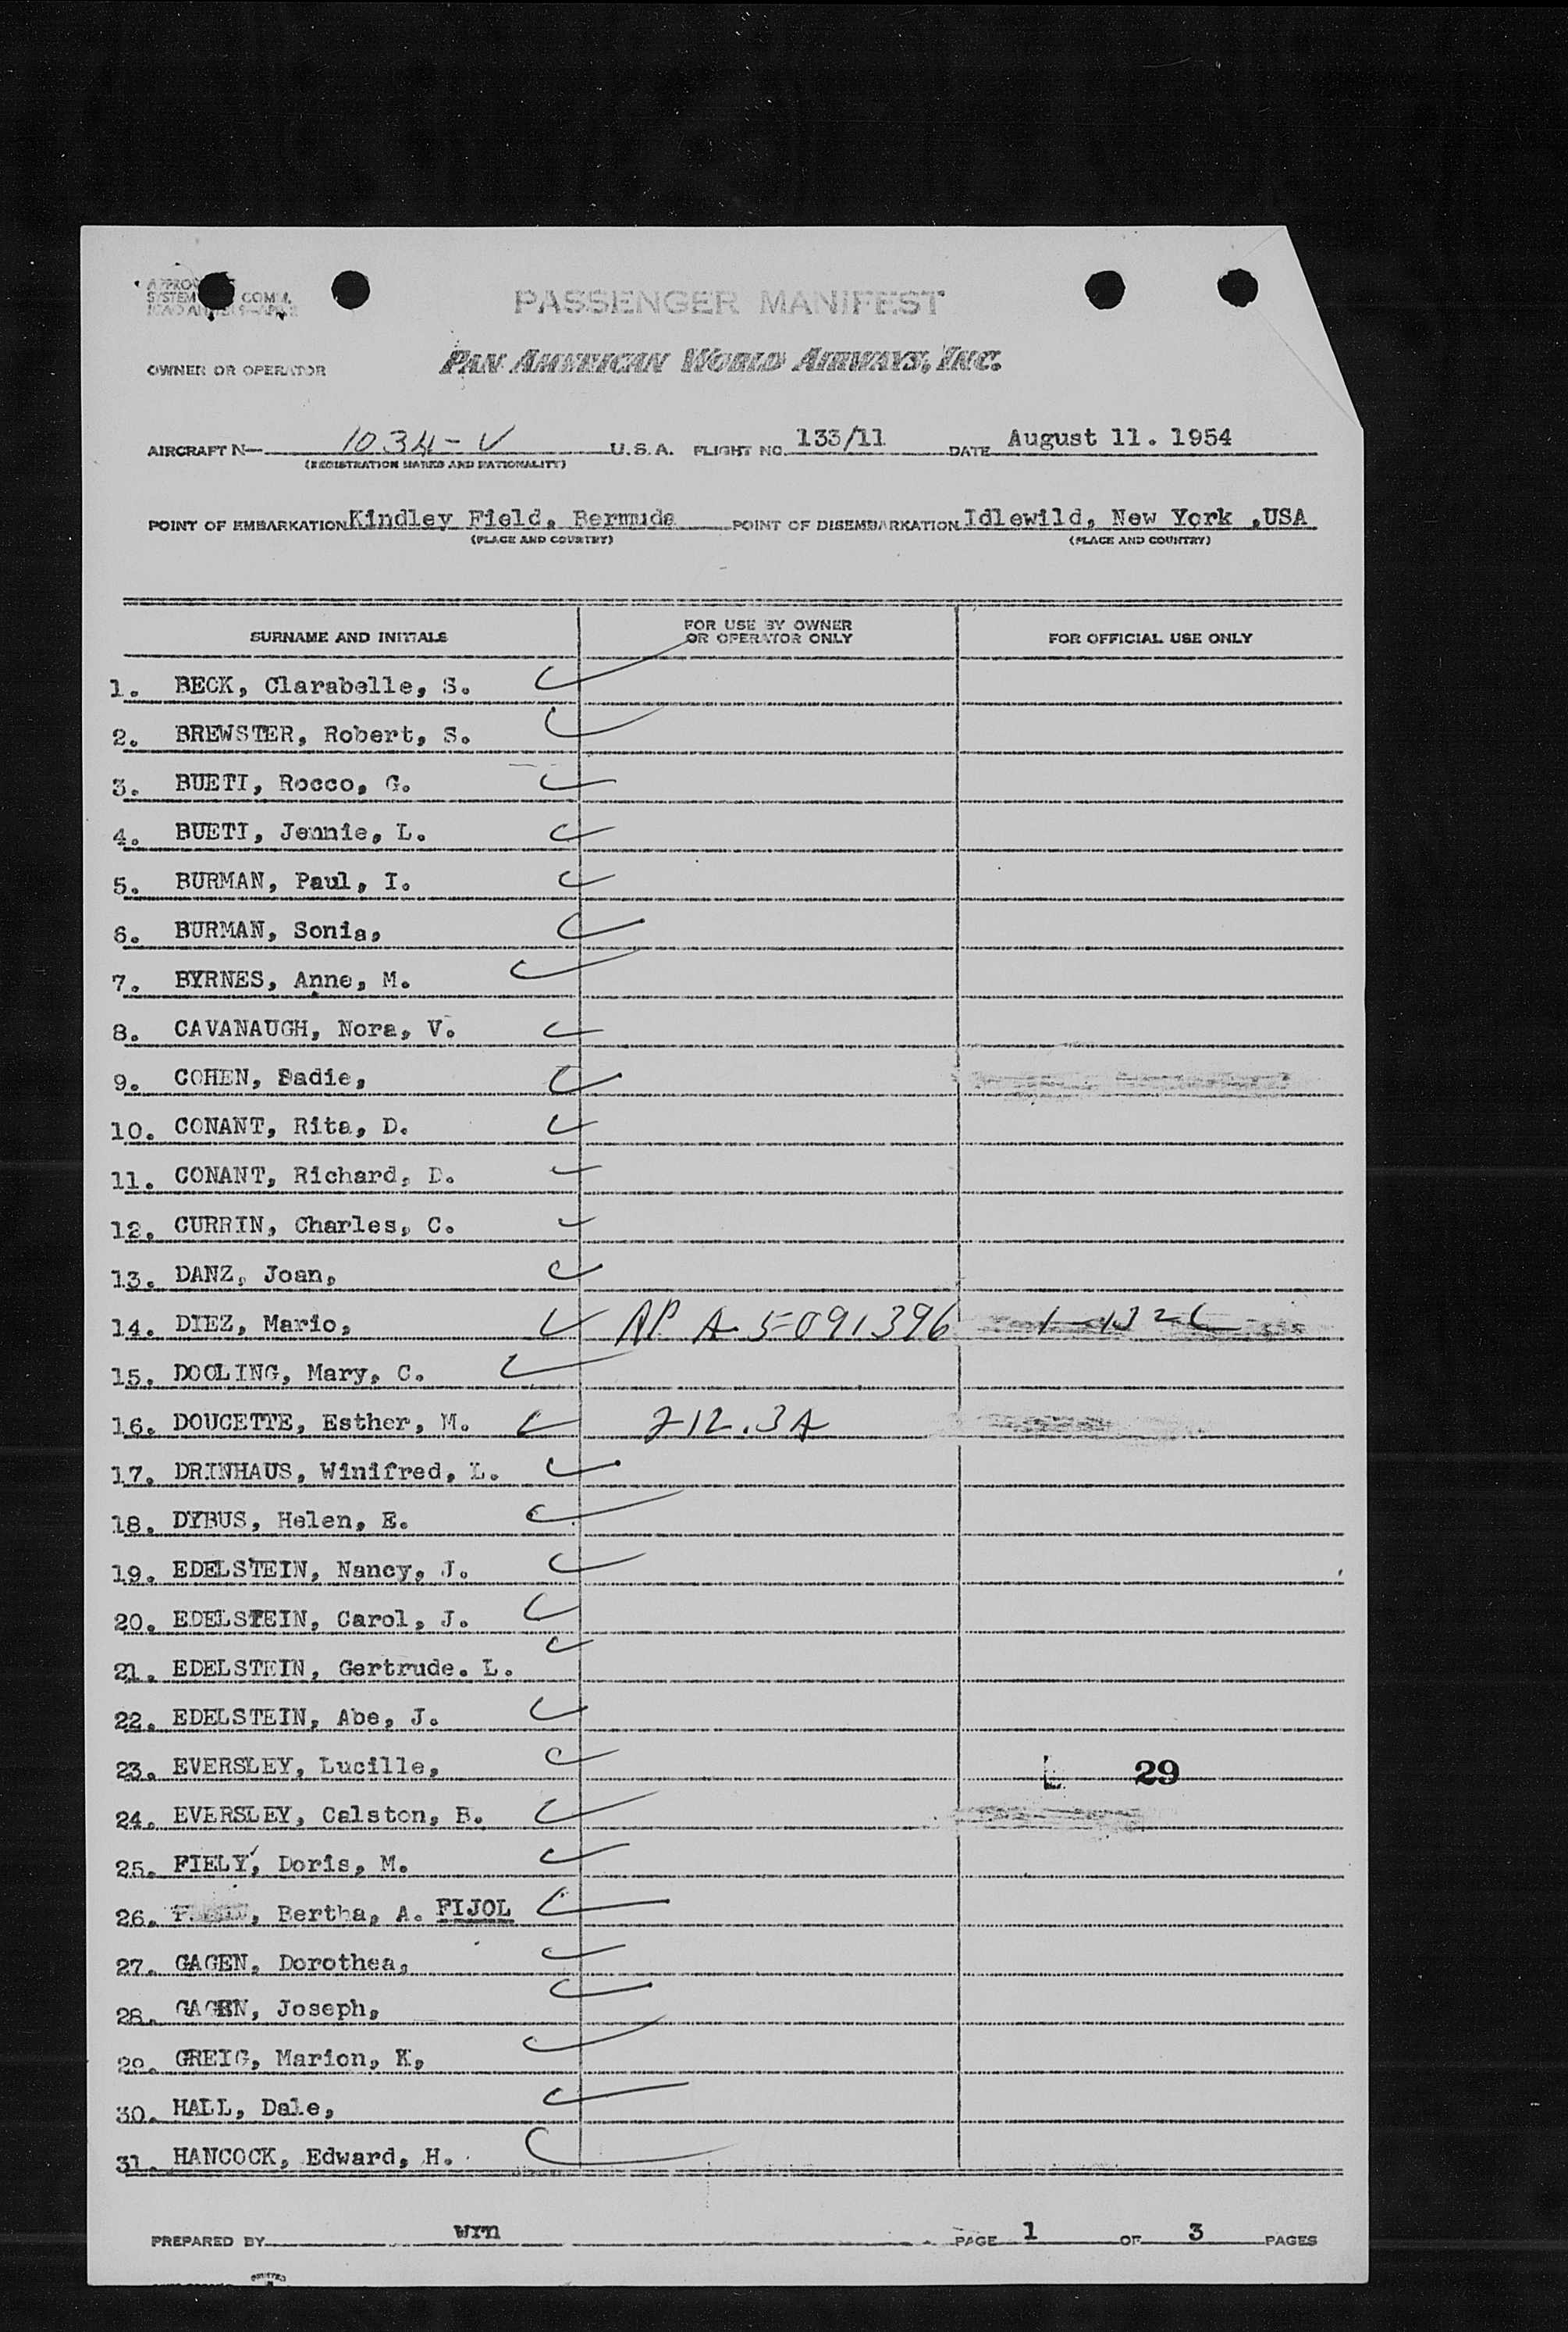 PASSENGER MANIFEST
SYSTEM COMM.
OWNER OR OPERATOR PAN AMERICAN WORLD AIRWAYS, INC.
AIRCRAFT N— 1034-V U.S.A. FLIGHT NO. 133/11 DATE August 11. 1954
(REGISTRATION MARKS AND NATIONALITY)
POINT OF EMBARKATION Kindley Field, Bermuda POINT OF DISEMBARKATION Idlewild, New York ,USA
(PLACE AND COUNTRY) (PLACE AND COUNTRY)
SURNAME AND INITIALS FOR USE BY OWNER OR OPERATOR ONLY FOR OFFICIAL USE ONLY
1. BECK, Clarabelle, S.
2. BREWSTER, Robert, S.
3. BUETI, Rocco, G.
4. BUETI, Jennie, L.
5. BURMAN, Paul, I.
6. BURMAN, Sonia,
7. BYRNES, Anne, M.
8. CAVANAUGH, Nora, V.
9. COHEN, Sadie,
10. CONANT, Rita, D.
11. CONANT, Richard, D.
12. CURRIN, Charles, C.
13. DANZ, Joan,
14. DIEZ, Mario, AP A-5091396
15. DOOLING, Mary, C.
16. DOUCETTE, Esther, M. 212.3A
17. DRINHAUS, Winifred, L.
18. DYBUS, Helen, E.
19. EDELSTEIN, Nancy, J.
20. EDELSTEIN, Carol, J.
21. EDELSTEIN, Gertrude. L.
22. EDELSTEIN, Abe, J.
23. EVERSLEY, Lucille, 29
24. EVERSLEY, Calston, B.
25. FIELY, Doris, M.
26. , Bertha, A. FIJOL
27. GAGEN, Dorothea,
28. GAGEN, Joseph,
29. GREIG, Marion, K,
30. HALL, Dale,
31. HANCOCK, Edward, H.
PREPARED BY wrm PAGE 1 OF 3 PAGES
PRINTED